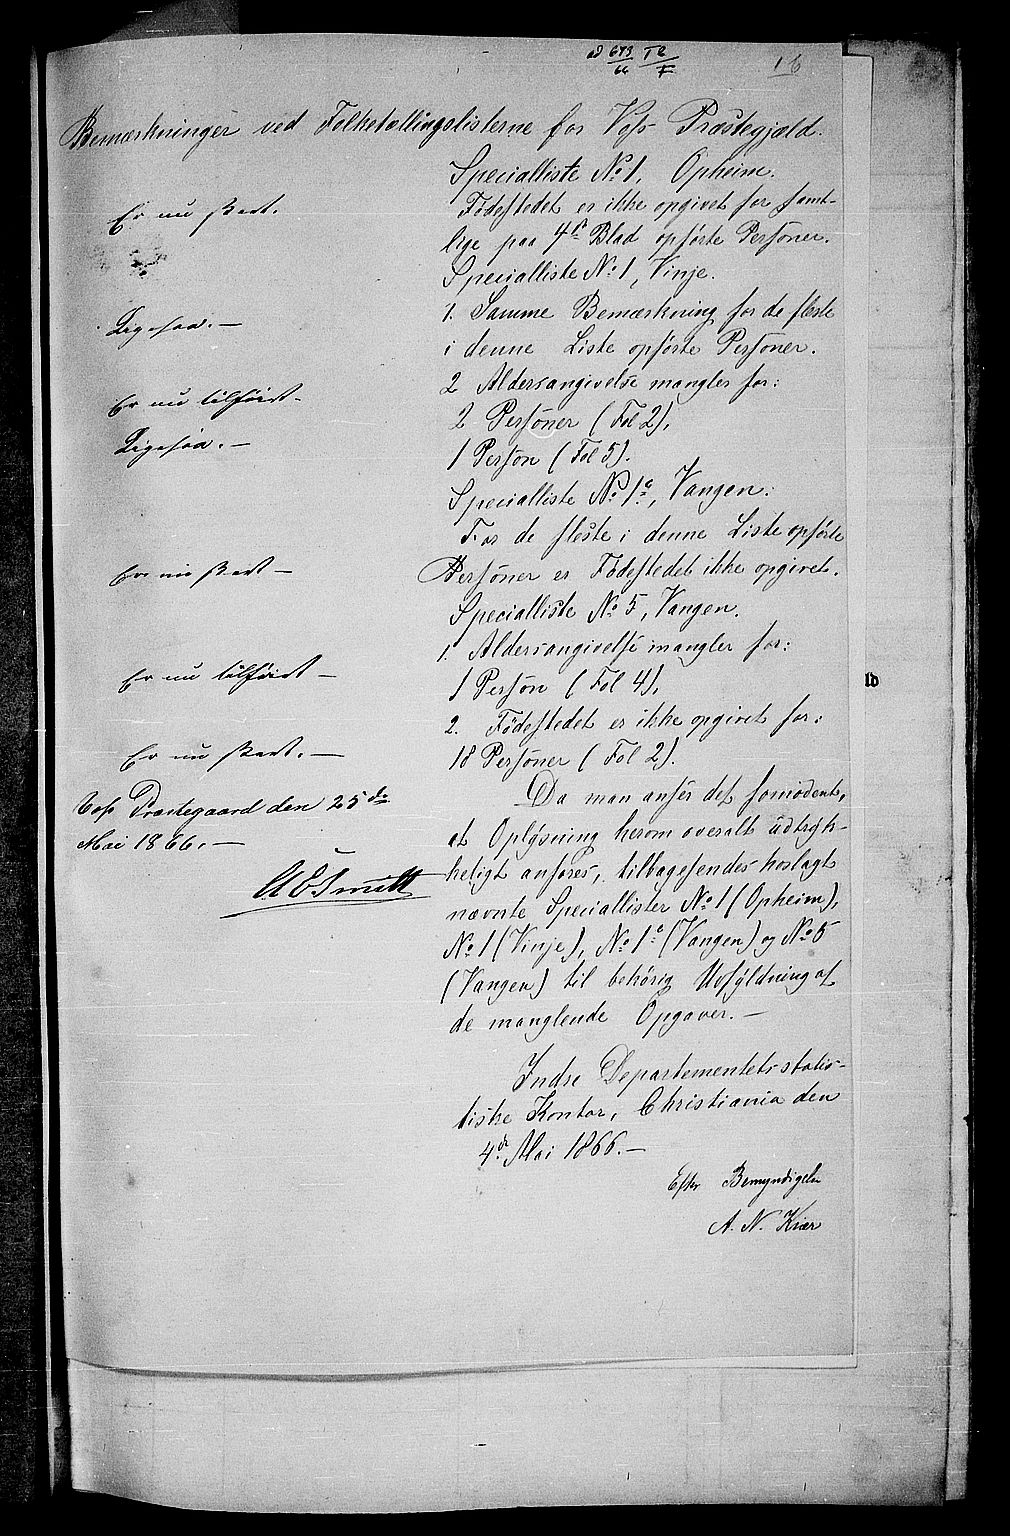 673 T2
66 F
16
Bemærkninger ved Folketællingslisterne for Voss Præstegjæld.
Specialliste No 1, Opheim.
Er nu skeet.
Fødestedet er ikke opgivet for samt-
lige paa 4de Blad opførte Personer.
Specialliste No 1, Vinje.
Ligesaa. —
1. Samme Bemærkning for de fleste
i denne Liste opførte Personer.
2 Aldersangivelse mangler for:
Er nu tilføiet.
2 Personer (Fol 2),
Ligesaa. —
1 Person (Fol 5).
Specialliste No 1a, Vangen:
For de fleste i denne Liste opførte
Er nu skeet —
Personer er Fødestedet ikke opgivet.
Specialliste No 5, Vangen.
1. Aldersangivelse mangler for:
Er nu tilføiet —
1 Person (Fol 4),
2. Fødestedet er ikke opgivet for:
Er nu skeet. —
18 Personer (Fol 2).
Voss Præstegaard den 25de
Mai 1866. —
Da man anser det fornødent,
at Oplysning herom overalt udtryk-
keligt anføres, tilbagesendes hoslagt
nævnte Speciallister No 1 (Opheim),
No 1 (Vinje), No 1a (Vangen) og No 5
(Vangen) til behørig Udfyldning af
de manglende Opgaver. —
Indre Departementets statis-
tiske Kontor, Christiania den
4de Mai 1866. —
Efter Bemyndigelse
A. N. Kiær
ld